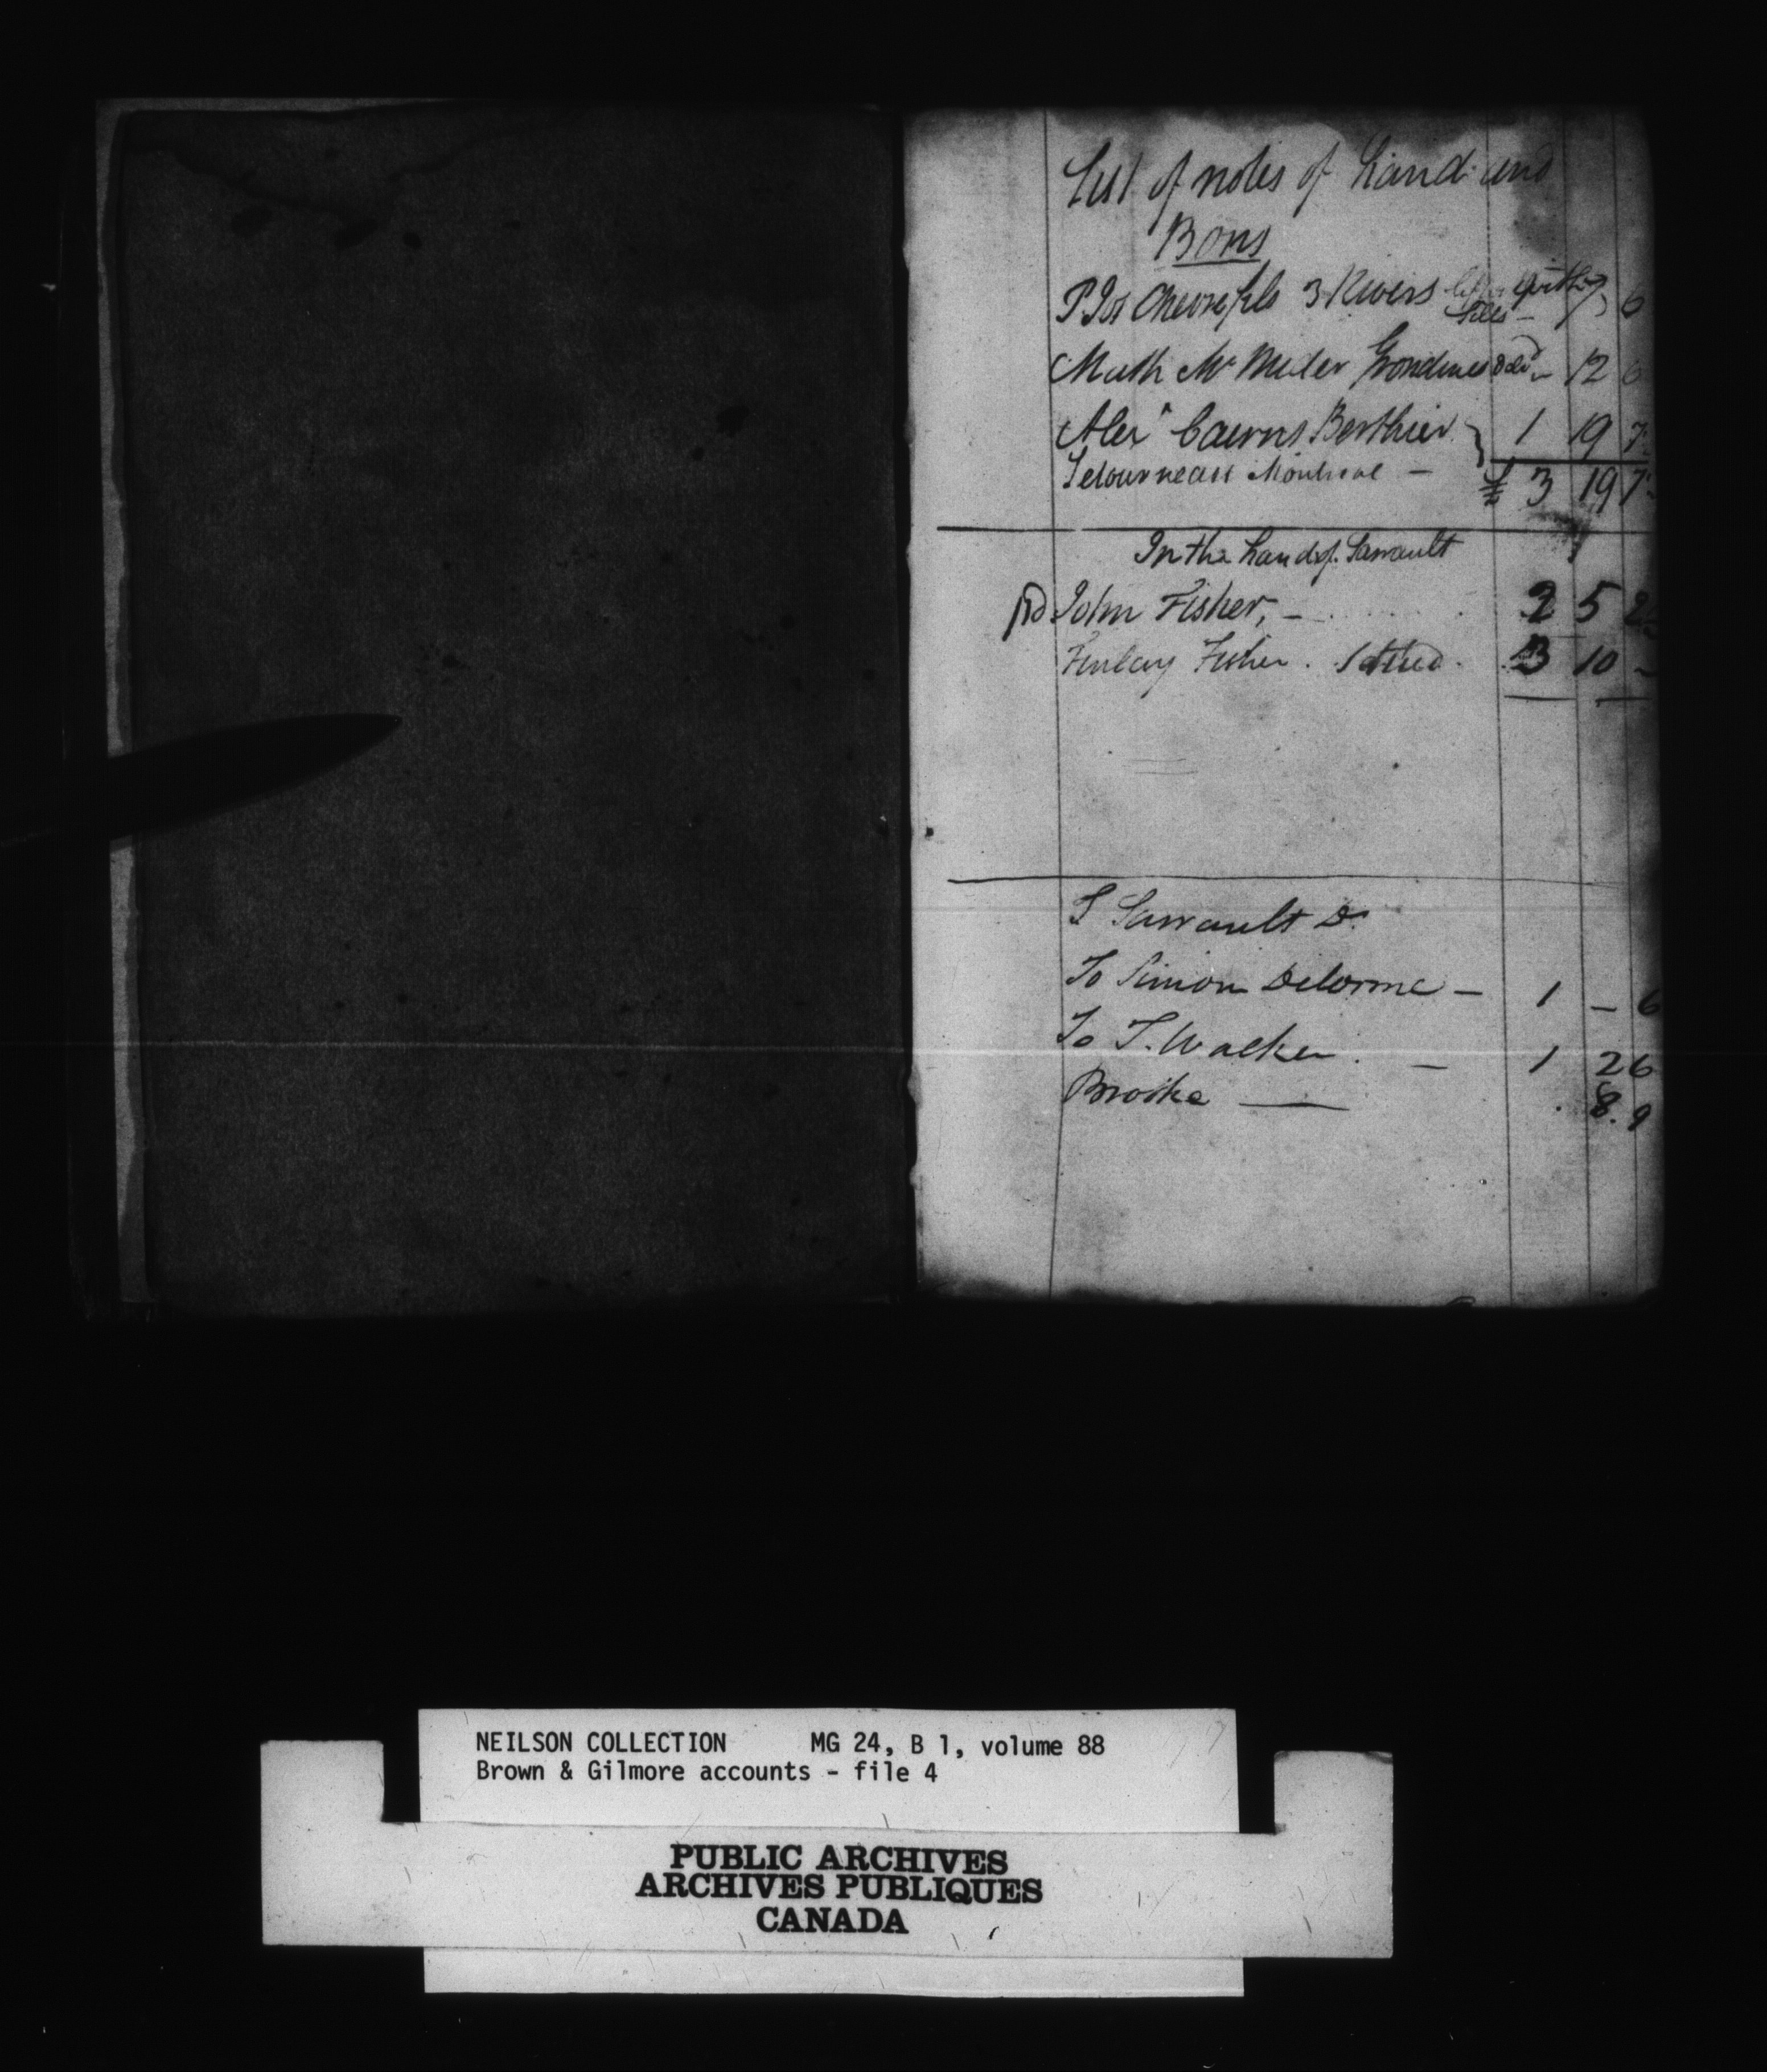 List of notes of hand and
Bons
P Jos Chevrefils 3 Rivers 7 6
Math McMider Grondines 12 6
Alexr Cairns Berthier 1 19 7
Letourneau Montreal — £ 3 19 7
In the hand of Sarrault
pd John Fisher, — 2 5 2
Finlay Fisher . 3 10 -
S Sarrault Dr
To Simon Delorme — 1 - 6
To T. Walker . — 1 2 6
Brooke — . 8. 9
NEILSON COLLECTION MG 24, B 1, volume 88
Brown & Gilmore accounts - file 4
PUBLIC ARCHIVES
ARCHIVES PUBLIQUES
CANADA